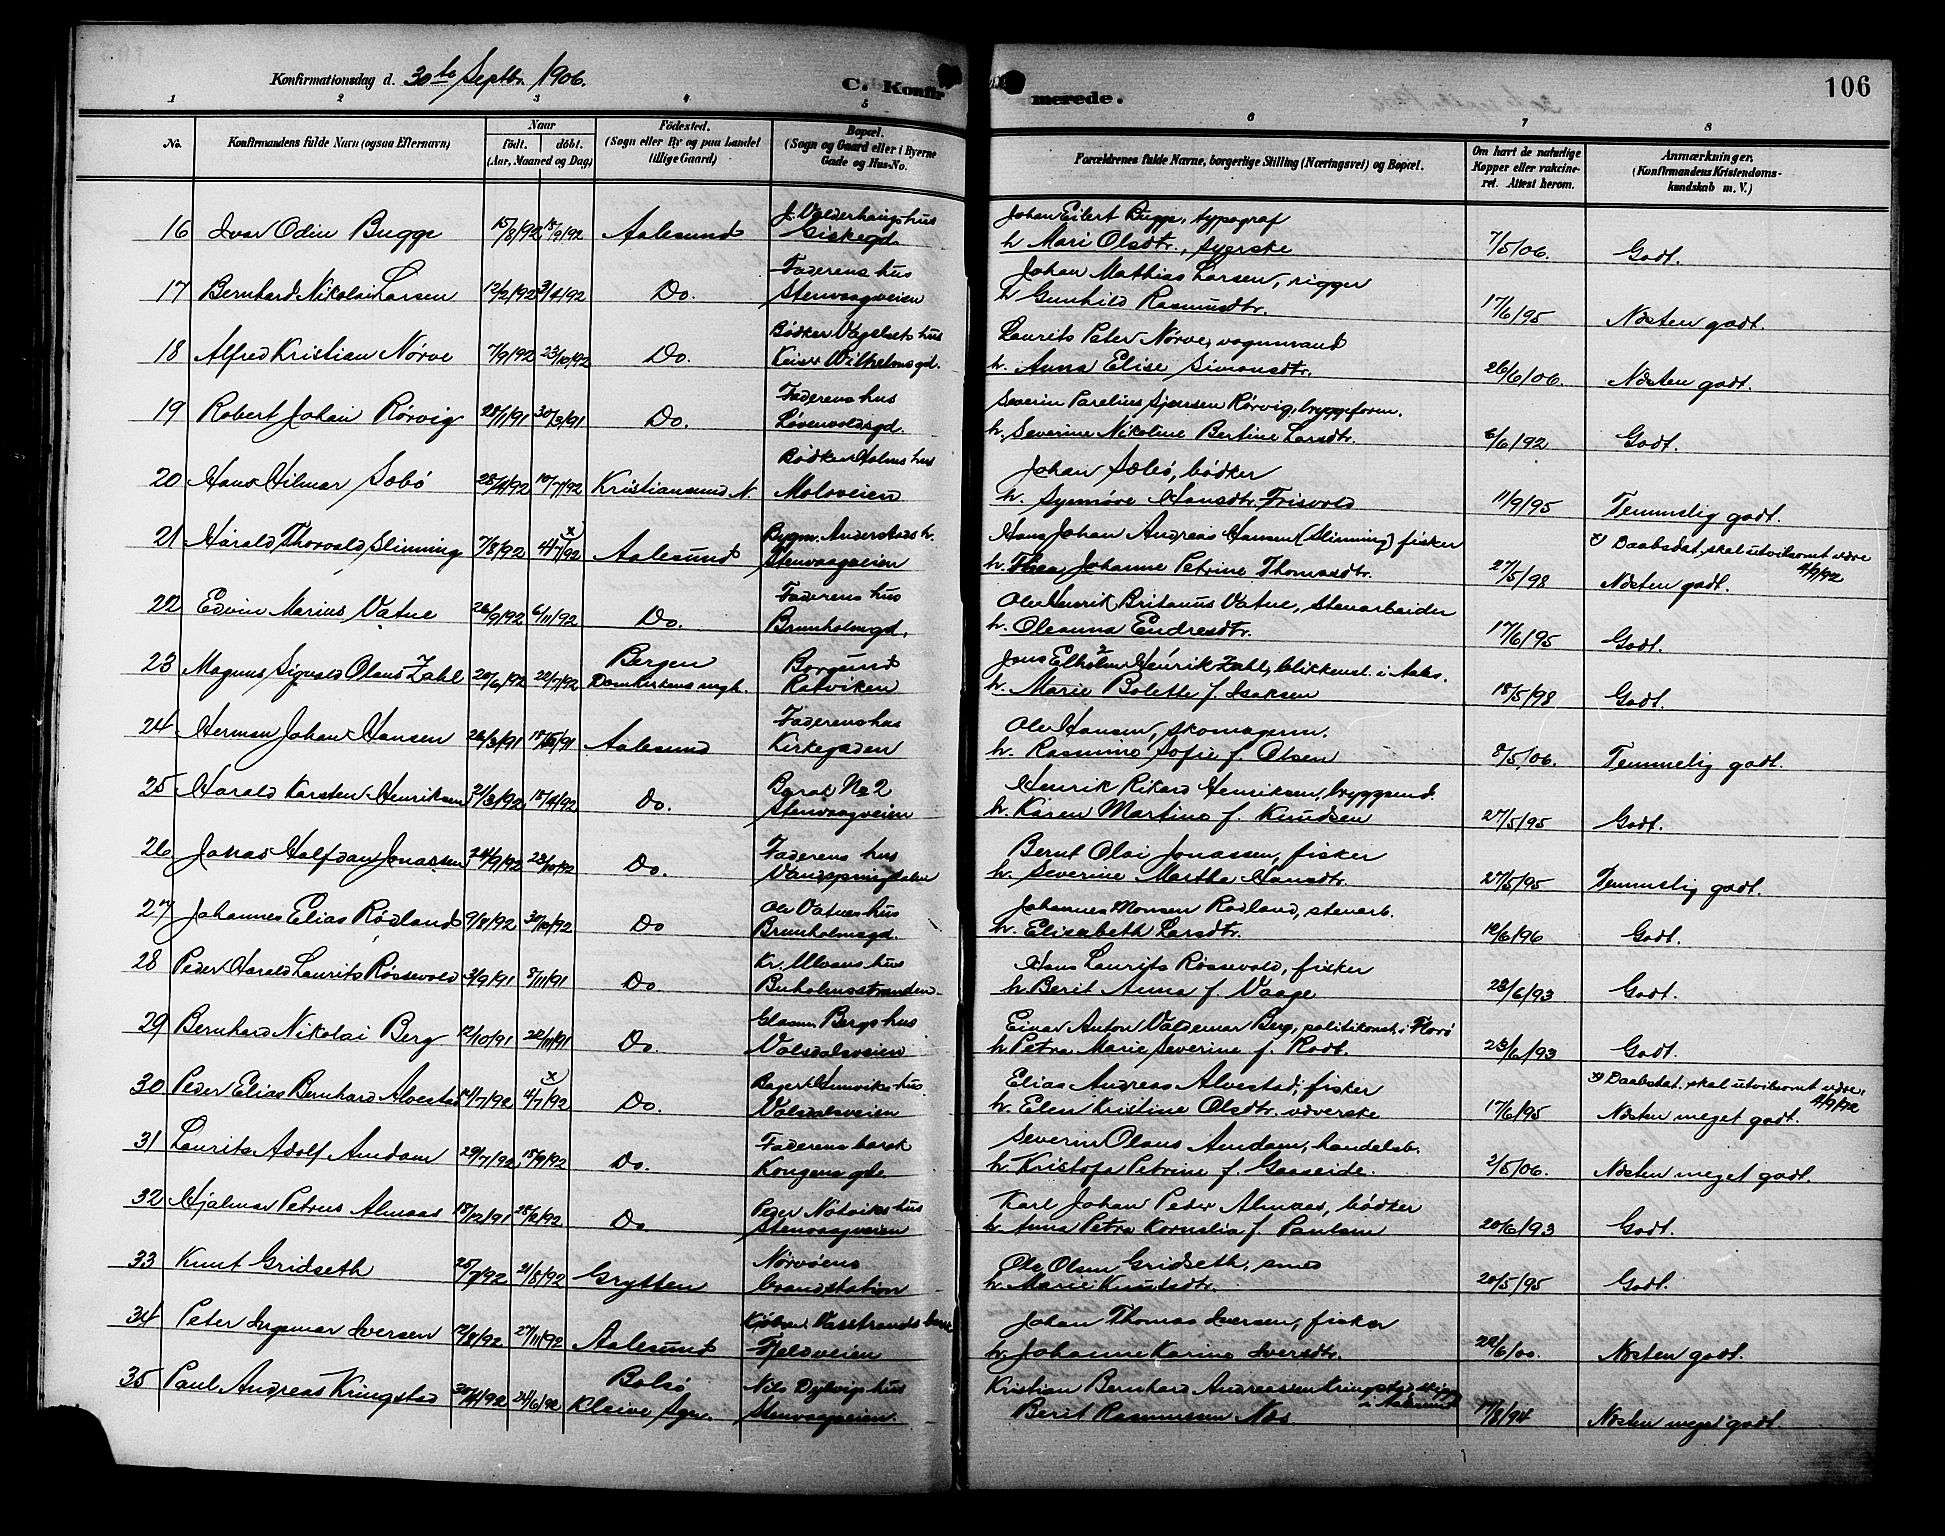 Konfirmationsdag d. 30te Septbr. 1906.
C. Konfirmerede.
106
1 2 3 4 5 6 7 8
No. Konfirmandens fulde Navn (ogsaa Efternavn) Naar födt. döbt. (Aar, Maaned og Dag) Födested. (Sogn eller By og paa Landet tillige Gaard) Bopæl. (Sogn og Gaard eller i Byerne Gade og Hus-No. Forældrenes fulde Navne, borgerlige Stilling (Næringsvei) og Bopæl. Om havt de naturlige Kopper eller vaccineret. Attest herom. Anmærkninger. (Konfirmandens Kristendomskundskab m. V.)
J. Valderhaugs hus Johan Eilert Bugge, typograf
16 Ivar Odin Bugge 15/8/92 18/9/92 Aalesund Giskegd. h. Mari Olsdtr., syerske 7/5/06. Godt.
Faderens hus Johan Mathias Larsen, rigger
17 Bernhard Nikolai Larsen 12/2/92 3/4/92 Do. Stenvaagveien h. Gunhild Rasmusdtr. 17/6/95 Næsten godt.
Bødker Vegsets hus Laurits Peter Nørve, vognmand
18 Alfred Kristian Nørve 7/9/92 23/10/92 Do. Keiser Wilhelmsgd. h. Anna Elise Simonsdtr. 26/6/06. Næsten godt.
Faderens hus Severin Parelius Sjursen Rørvig, bryggeform.
19 Robert Johan Rørvig 28/1/91 30/3/91 Do. Løvenvoldsgd. h. Severine Nikoline Bertine Larsdtr. 6/6/92 Godt.
Bødker Holms hus Johan Sæbø, bødker
20 Hans Hilmar Sæbø 28/4/92 10/7/92 Kristiansund N. Moloveien h. Synnøve Hansdtr. Frisvold 11/9/95 Temmelig godt.
Bygm. Anderstads h. Hans Johan Andreas Hansen (Slinning) fisker x) Daabsdat. skal utvilsomt være 4/9/92
21 Harald Thorvald Slinning 7/8/92 x) 4/7/92 Aalesund Stenvaagveien h. Thea Johanne Petrine Thomasdtr. 27/5/98 Næsten godt.
Faderens hus Ole Henrik Britanus Vatne, stenarbeider
22 Edvin Marius Vatne 26/9/92 6/11/92 Do. Brunholmgd. h. Oleanna Endresdtr. 17/6/95 Godt.
Bergen Borgund Jens Elholm Henrik Zahl, blikkensl. i Aales.
23 Magnus Sigvald Olaus Zahl 20/6/92 22/7/92 Domkirkens mgh. Ratviken h. Marie Bolette f. Isaksen 18/5/98 Godt.
Faderens hus Ole Hansen, skomagerm.
24 Herman Johan Hansen 26/3/91 18/10/91 Aalesund Kirkegaden h. Rasmine Sofie f. Olsen 8/5/06. Temmelig godt.
Barak No 2 Henrik Rikard Henriksen, bryggemd.
25 Harald Karsten Henriksen 21/3/92 18/4/92 Do. Stenvaagveien h. Karen Martine f. Knudsen 27/5/95 Godt.
Faderens hus Bernt Olai Jonassen, fisker
26 Jonas Halfdan Jonassen 24/9/92 23/10/92 Do. h. Severine Marthe Hansdtr. 27/5/95 Temmelig godt.
Ole Vatnes hus Johannes Monsen Rødland, stenarb.
27 Johannes Elias Rødland 9/8/92 30/10/92 Do Brunholmsgd. h. Elisabeth Larsdtr. 12/6/96 Godt.
Kr. Moens hus Hans Laurits Røssevold, fisker
28 Peder Harald Laurits Røssevold 3/9/91 8/11/91 Do Buholmsstranden h. Berit Anna f. Vaage 23/6/93 Godt.
Glasm. Bergs hus Einar Anton Valdemar Berg, politikonst. i Florø
29 Bernhard Nikolai Berg 12/10/91 22/11/91 Do. Volsdalsveien h. Petra Marie Severine f. Rodt. 23/6/93 Godt.
hus Elias Andreas Alvestad, fisker x) Daabsdat. skal utvilsomt være 4/9/92
30 Peder Elias Bernhard Alvestad 14/7/92 x) 4/7/92 Do. Volsdalsveien h. Elen Kristine Olsdtr. væverske 17/6/95 Næsten meget godt.
Faderens barak Severin Olaus Amdam, handelsb.
31 Laurits Adolf Amdam 29/7/92 18/9/92 Do. Kongens gd. h. Kristofa Petrine f. Gaaseide. 2/5/06. Næsten meget godt.
Peder Nøtviks hus Karl Johan Peder Almaas, bødker
32 Hjalmar Petrus Almaas 18/12/91 28/2/92 Do Stenvaagveien h. Anna Petra Kornelia f. Paulsen 20/6/93 Godt.
Nørvøens Ole Olsen Gridseth, smed
33 Knut Gridseth 25/7/92 21/8/92 Grytten brandstation h. Marie Knutsdtr. 20/5/95 Godt.
Kjøbm. Vasstrands hus Johan Thomas Iversen, fisker
34 Peter Ingemar Iversen 12/8/92 27/11/92 Aalesund Fjeldveien h. Johanne Karine Iversdtr. 22/6/00. Næsten godt.
Bolsø Nils Dylvigs hus Kristian Bernhard Andreassen Kringstad, i Aalesund
35 Paul Andreas Kringstad 30/4/92 24/6/92 Kleive Sgn. Stenvaagveien. Berit Rasmussen Næs 17/8/94 Næsten meget godt.